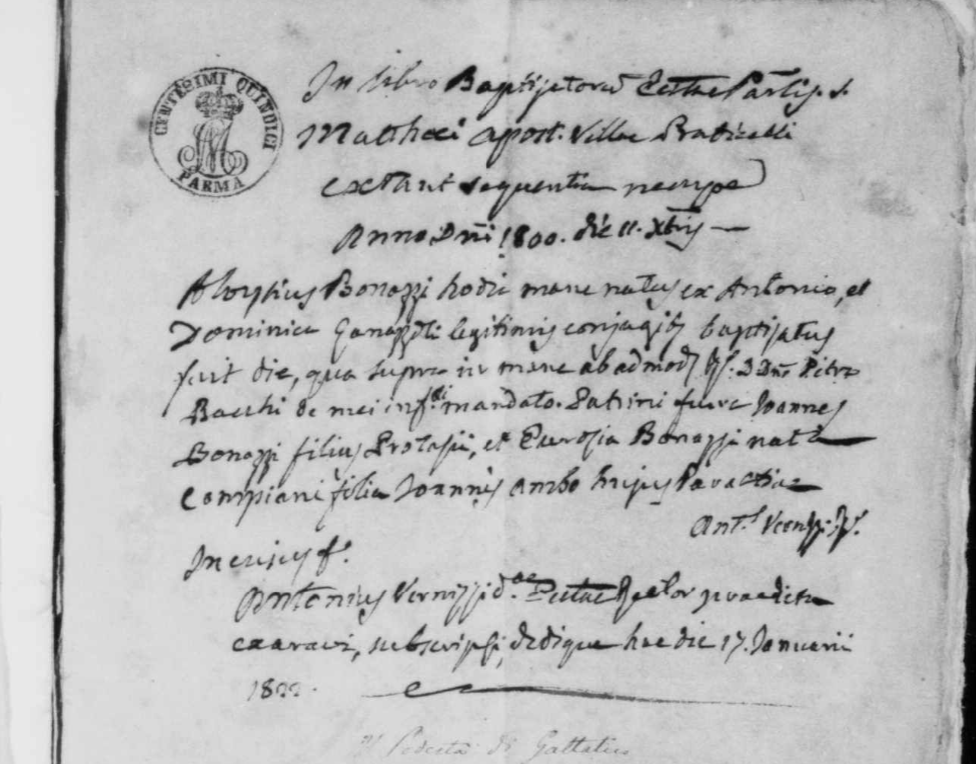 CENTESIMI QUINDICI
PARMA
In libro Baptizatorū Ecctae Parlis S.
Matthaei Apost. Villae Praticelli
extant sequentia nempe
Anno Dñi 1800. die 11. Xbris
Aloysius Bonazzi hodie mane natus ex Antonio, et
Dominica legitimis conjugibus baptizatus
fuit die, qua supra in mane ab admod. Dno Petro
Bacchi de mei mandato. Patrini fuere Joannes
Bonazzi filius Protasii, et Eurosia Bonazzi nata
Compiani filia Joannis ambo hujus Paraeciae
Ant.s Vernizzi
In cujus f.
Antonius Vernizzi d.ae Ecctae Rector praedicta
exaravi, subscripsi, dedique hac die 17. Januarii
1822.
Podestà di Gattatico